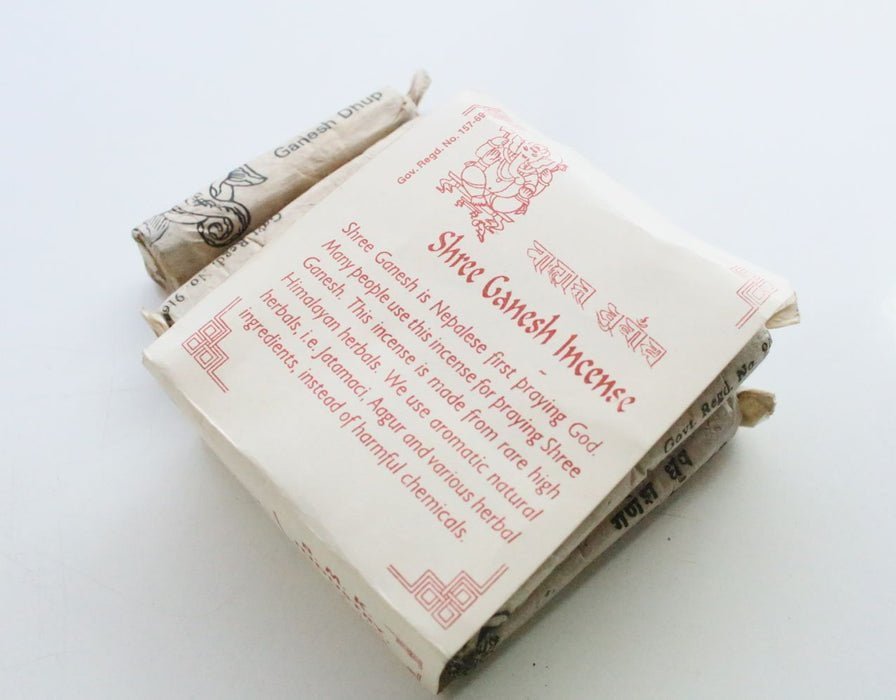 Ganesh Dhup
Gov. Regd. No. 157-69
Shree Ganesh Incense
Shree Ganesh is Nepalese first praying God.
Many people use this incense for praying Shree
Ganesh. This incense is made from rare high
Himalayan herbals. We use aromatic natural
herbals, i.e. Jatamaci, Aagur and various herbal
ingredients, instead of harmful chemicals.
Govt Regd. No
गणेश धुप